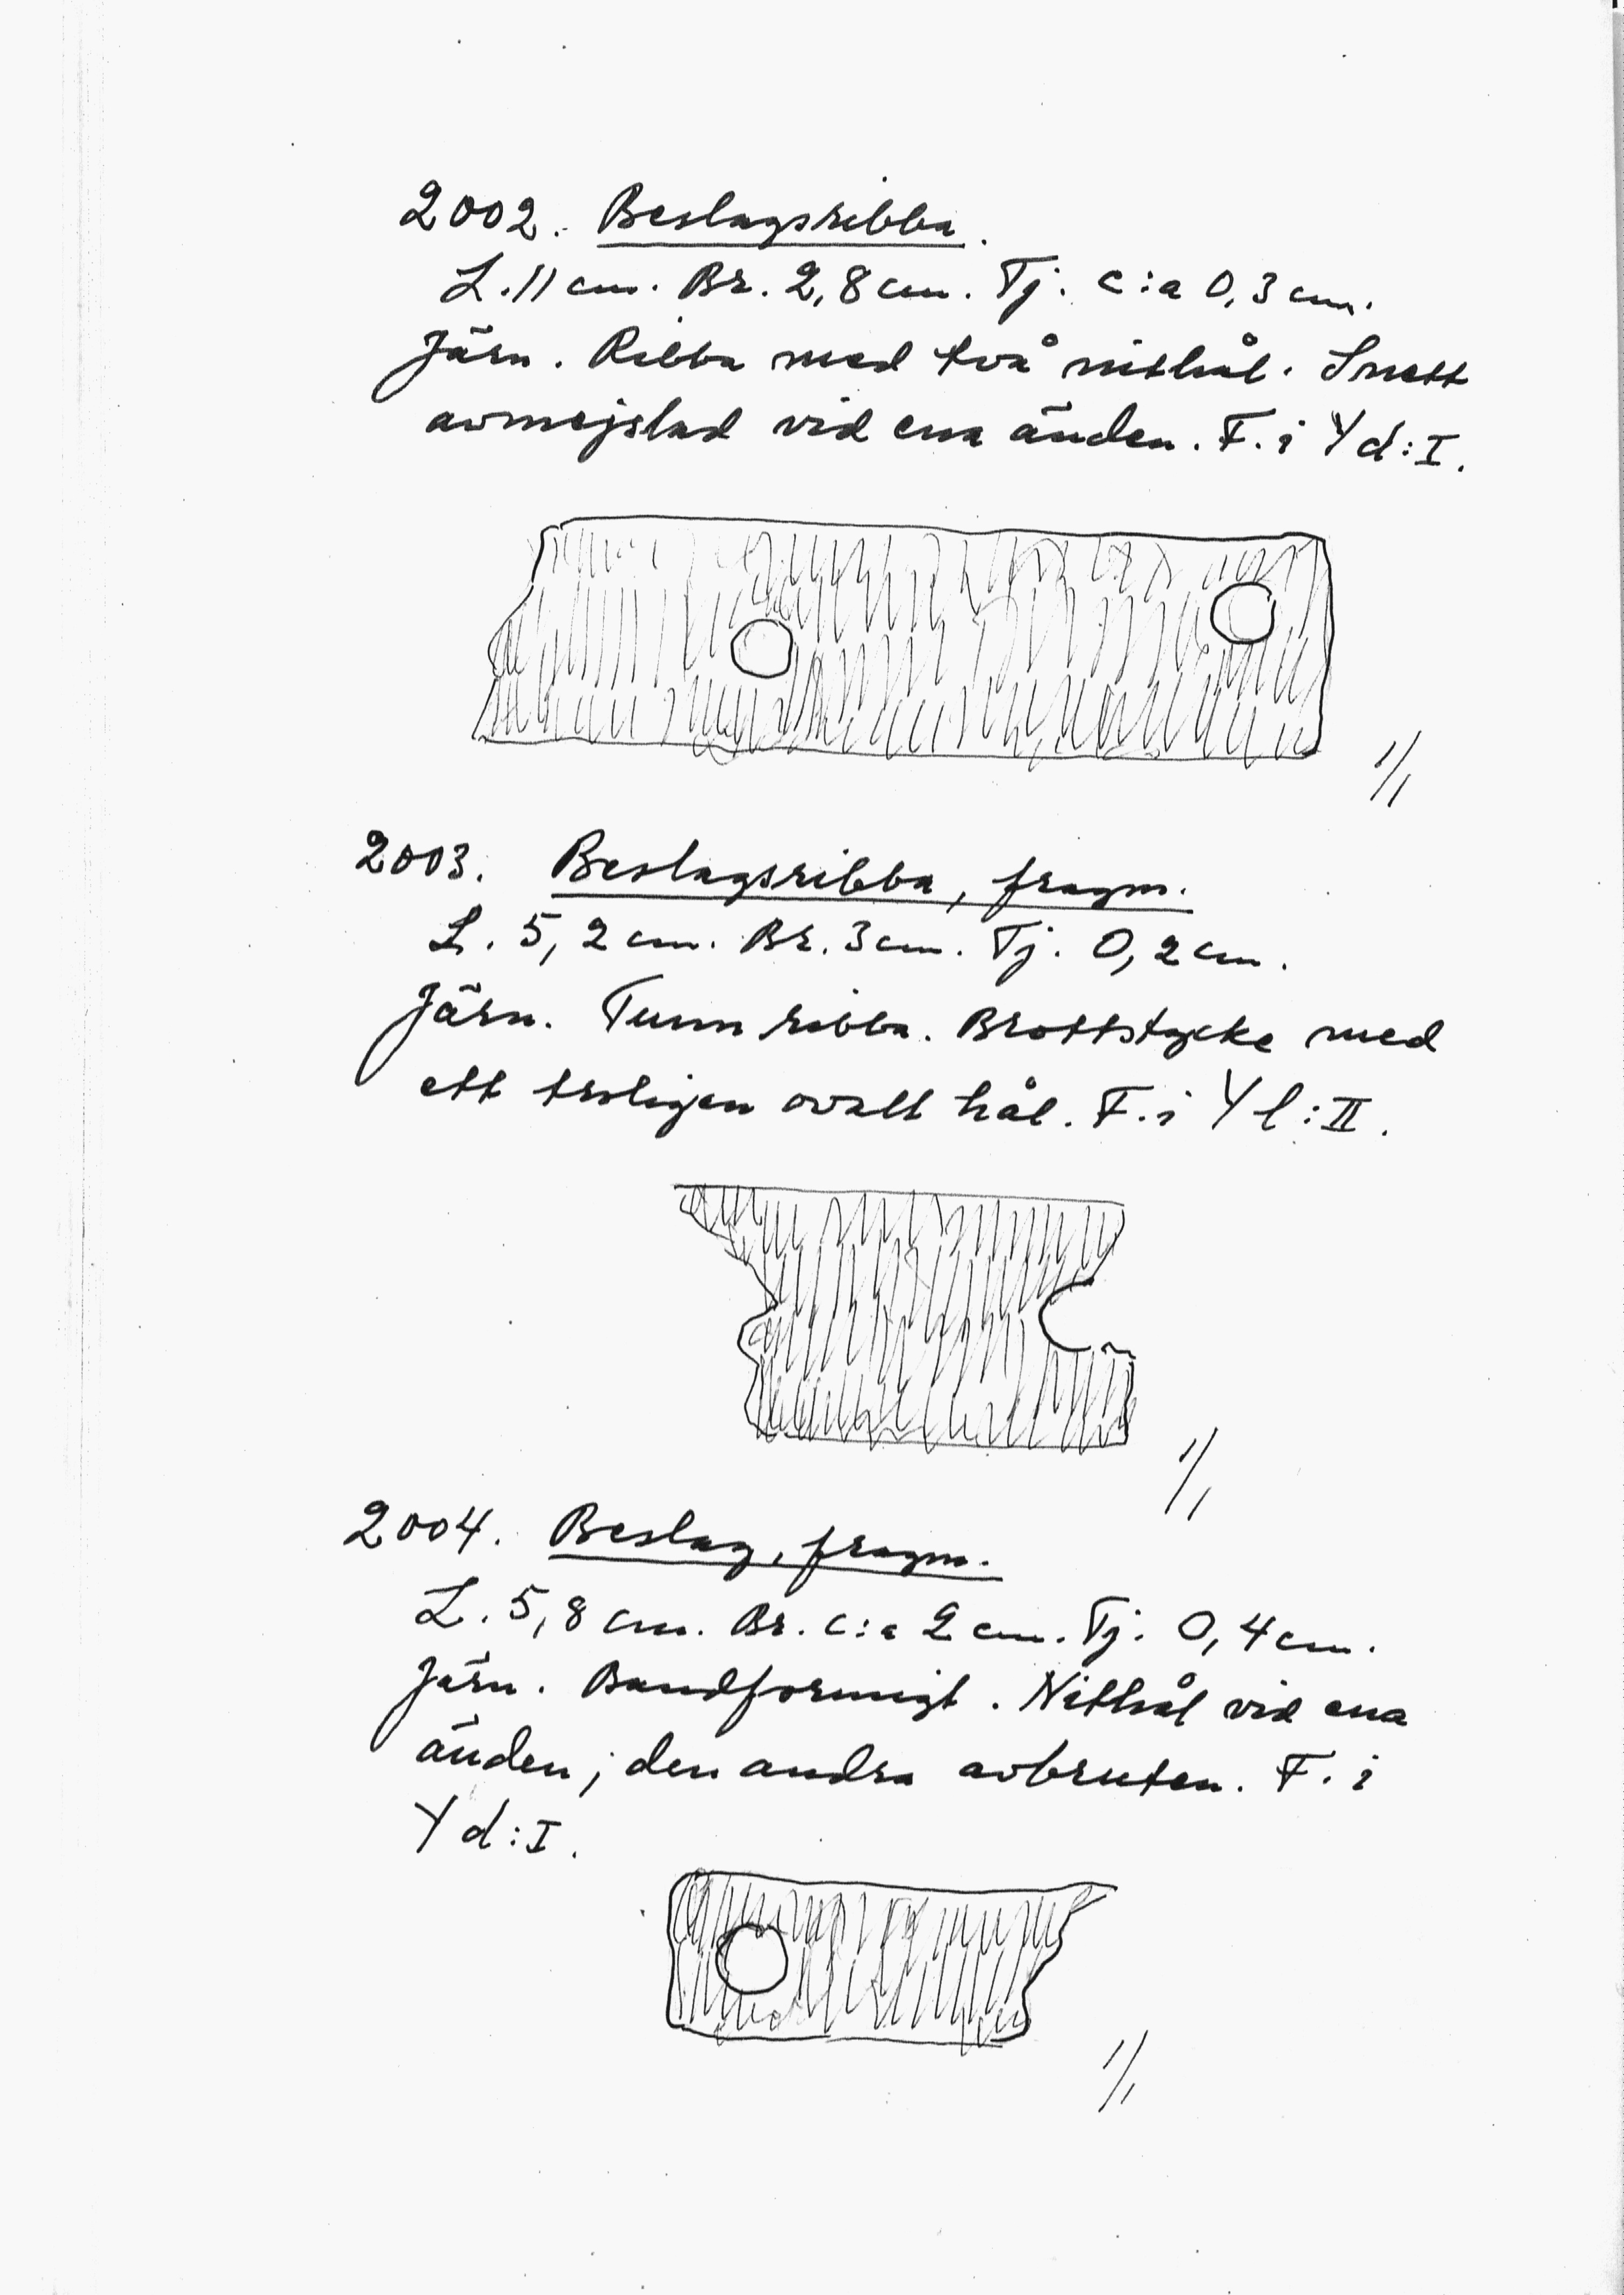 2002. Beslagsribba.
L. 11 cm. Br. 2,8 cm. Tj. c:a 0,3 cm.
Järn. Ribba med två nithål. Snett
avmejslad vid ena änden. F. i Yd:I.
1/1
2003. Beslagsribba, fragm.
L. 5,2 cm. Br. 3 cm. Tj. 0,2 cm.
Järn. Tunn ribba. Brottstycke med
ett troligen ovalt hål. F. i Yl:II.
1/1
2004. Beslag, fragm.
L. 5,8 cm. Br. c:a 2 cm. Tj. 0,4 cm.
Järn. Bandformigt. Nithål vid ena
änden; den andra avbruten. F. i
Yd:I.
1/1